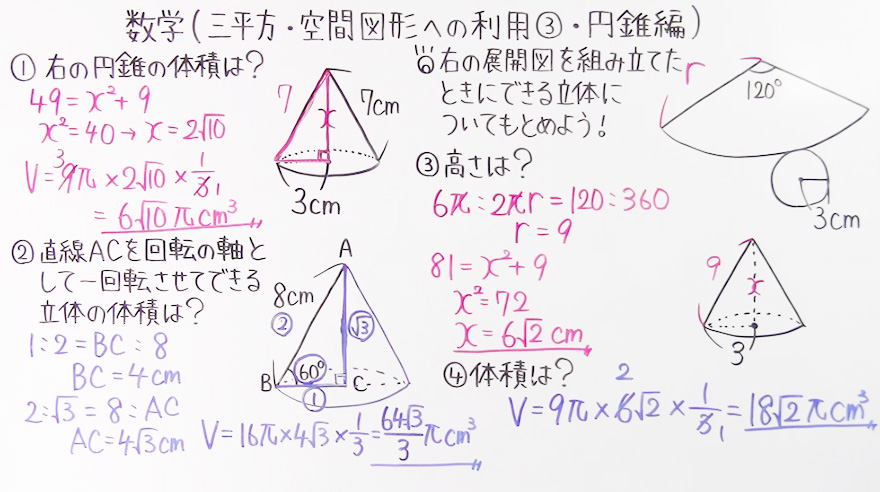 数学(三平方・空間図形への利用③・円錐編)
① 右の円錐の体積は?
49=x²+9
x²=40→x=2√10
V=9π×2√10×1/3
3
1
=6√10πcm³
7
7cm
x
3cm
② 直線ACを回転の軸と
して一回転させてできる
立体の体積は?
1:2=BC:8
BC=4cm
2:√3=8:AC
AC=4√3cm
V=16π×4√3×1/3=64√3/3πcm³
A
8cm
②
√3
60°
B
C
①
右の展開図を組み立てた
ときにできる立体に
ついてもとめよう!
r
120°
3cm
③高さは?
6π:2πr=120:360
r=9
81=x²+9
x²=72
x=6√2cm
9
x
3
④体積は?
V=9π×6√2×1/3=18√2πcm³
2
1